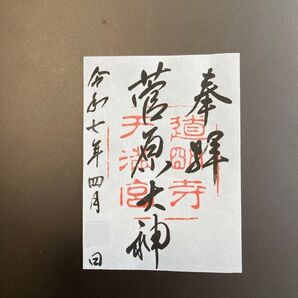 奉拝
道明寺
天満宮
菅原大神
令和七年四月 日